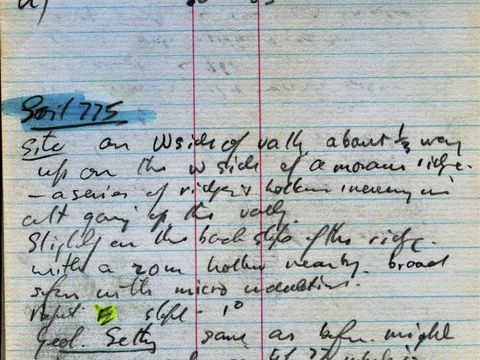 Soil 775
Site on W side of vally about 1/3 way
up on the W side of a moraine ridge.
- a series of ridges & hollows increasing in
alt going up the vally.
Slightly on the back slope of the ridge.
with a 20m hollow nearby. broad
with micro undulations.
slope - 1°
Geol. Setting same as before might